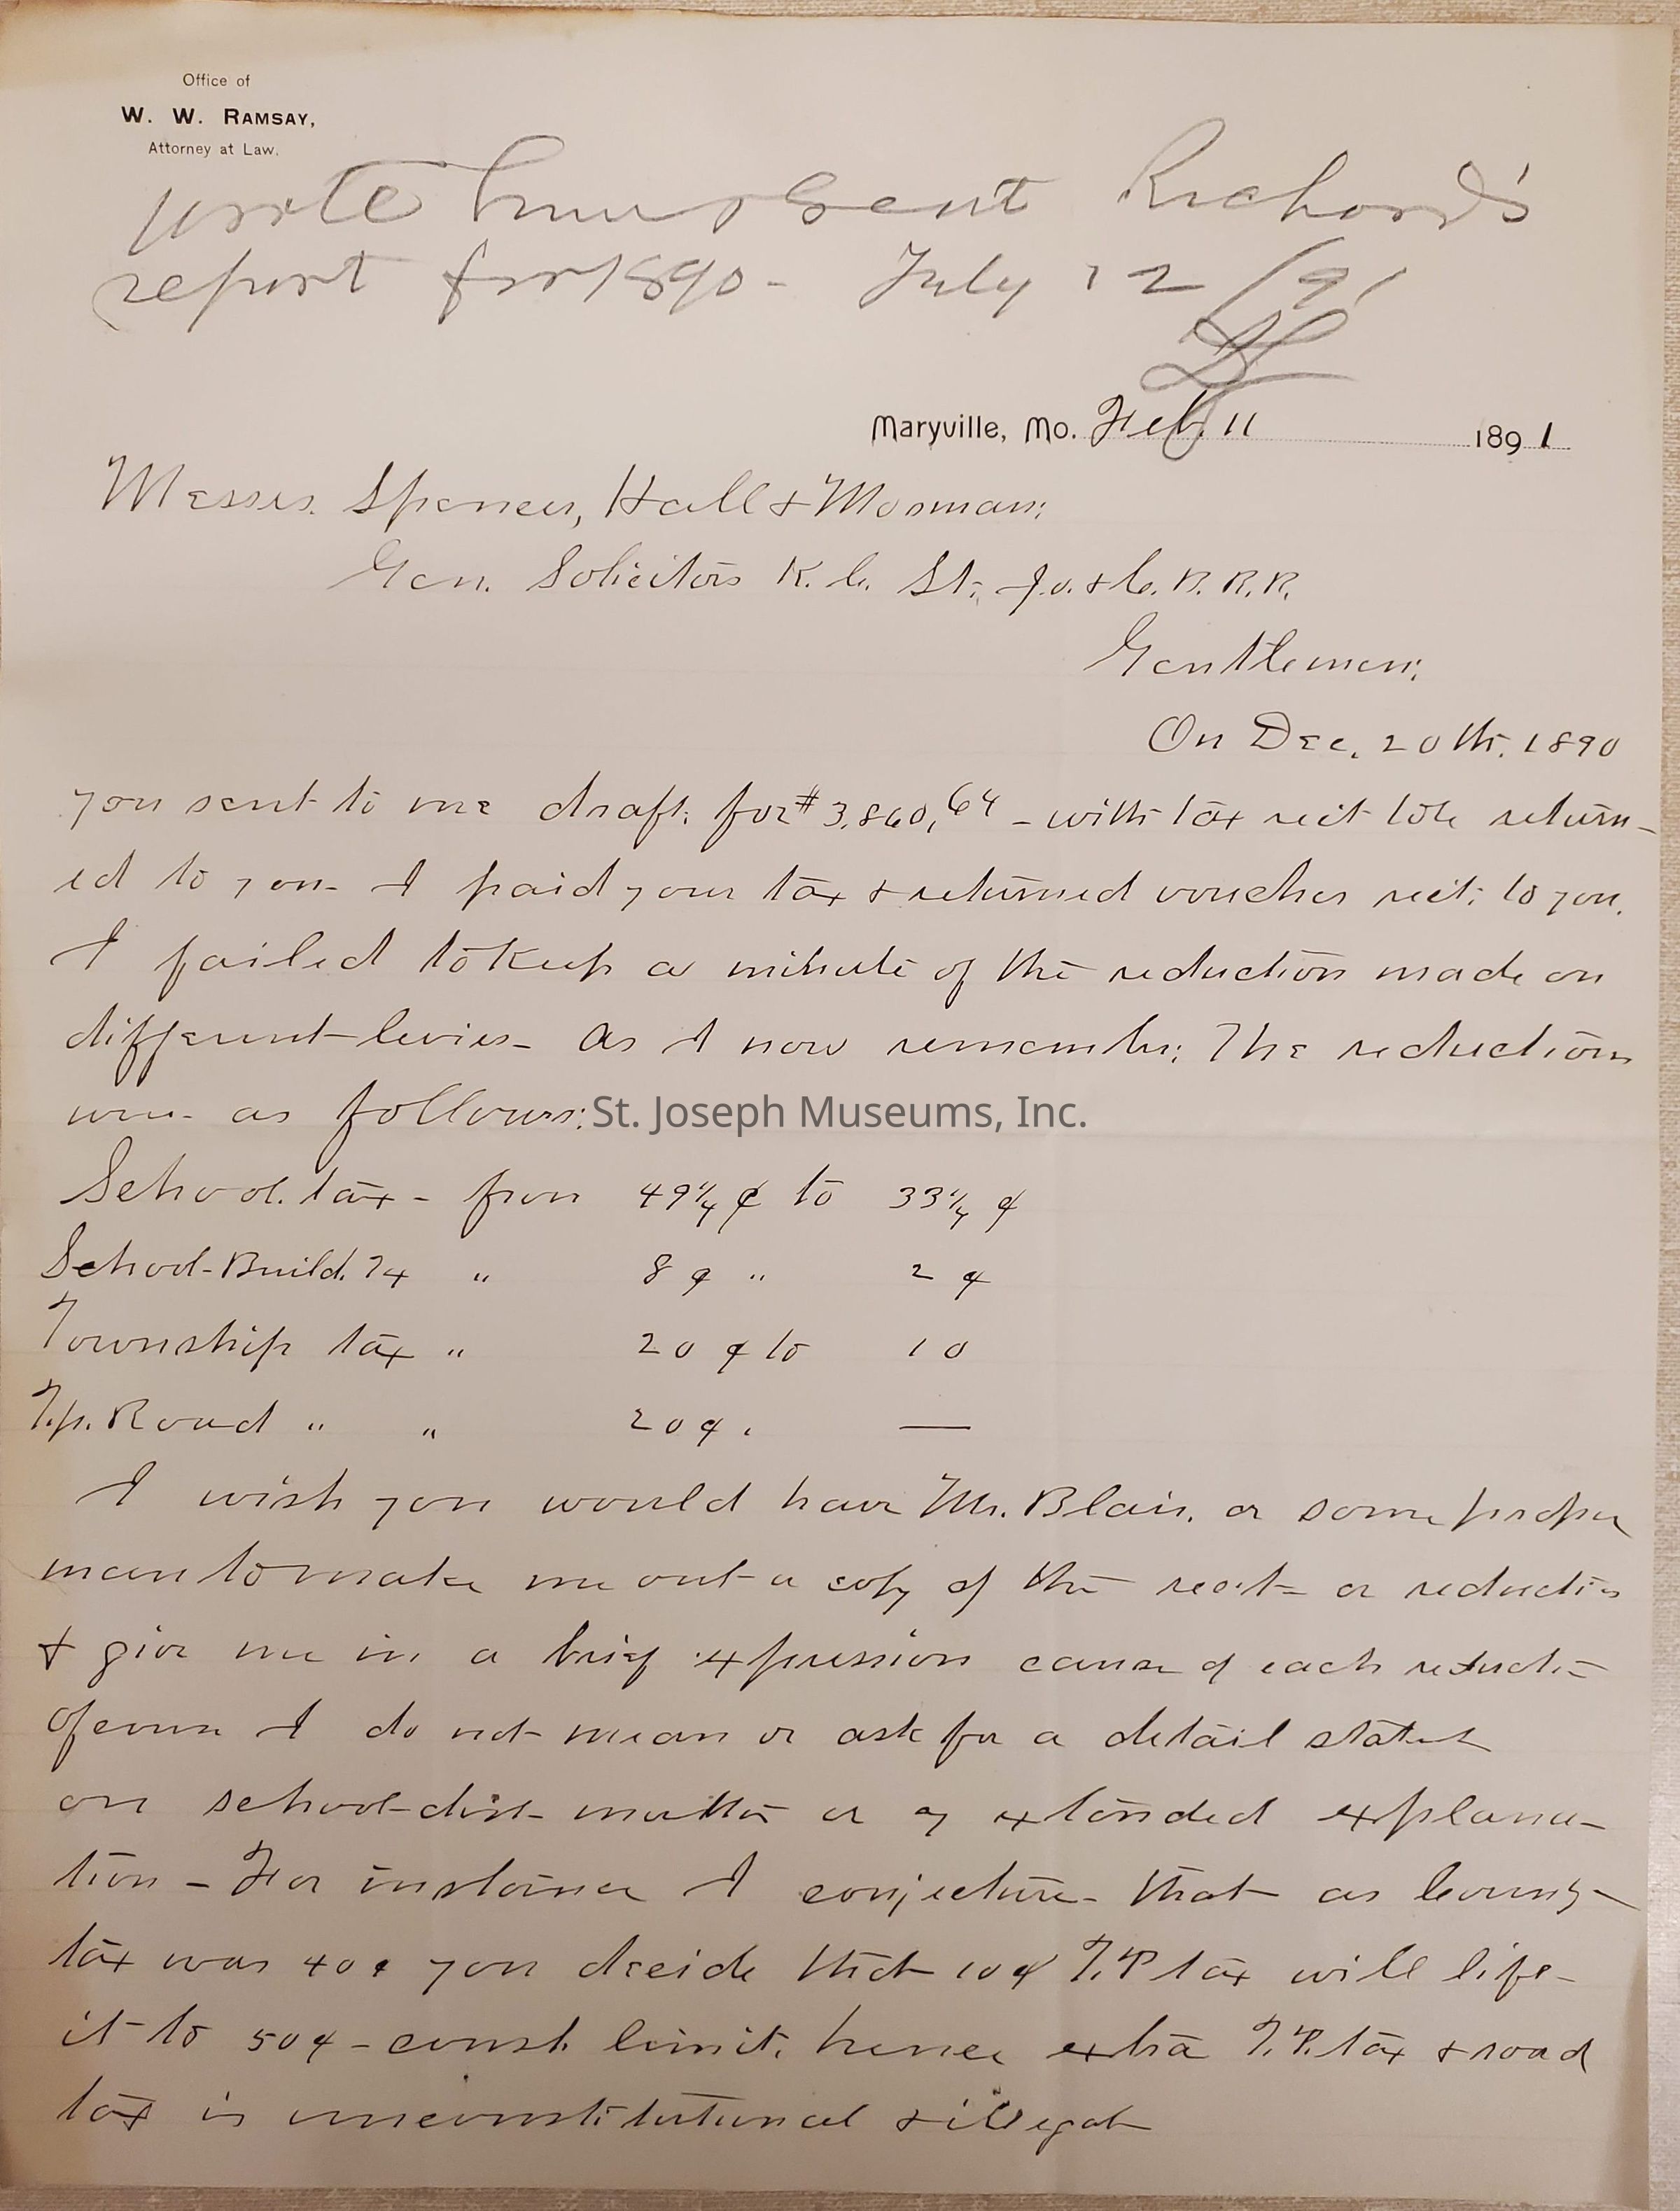 Office of
W. W. RAMSAY,
Attorney at Law.
wrote him & sent Richards'
report for 1890 - July 12/91
Maryville, Mo. Feb. 11 1891
Messrs. Spencer, Hall & Mosman;
Gen. Solicitors K. C. St. Jo. & C. B. R. R.
Gentlemen;
On Dec. 20th. 1890
you sent to me draft for $3,860,64 - with tax rect to be return-
ed to you - I paid your tax & returned voucher rect. to you.
I failed to keep a minute of the reduction made on
different levies - As I now remember; The reductions
were as follows:
St. Joseph Museums, Inc.
School tax - from 49¼ ¢ to 33¼ ¢
School-Build. Tx " 8 ¢ " 2 ¢
Township tax " 20 ¢ to 10
T.p. Road " " 20 ¢. —
I wish you would have Mr. Blair, or some proper
man to make me out a copy of the rect- or reduction
& give me in a brief expression cause of each reducti-
Of course I do not mean or ask for a detail
on school-dist- matter or extended explana-
tion - For instance I conjecture - that as County-
tax was 40¢ you decide that 10¢ T.P tax will
it to 50¢ - const. limit, hence extra T.P. tax & road
tax is unconstitutional & illegal-